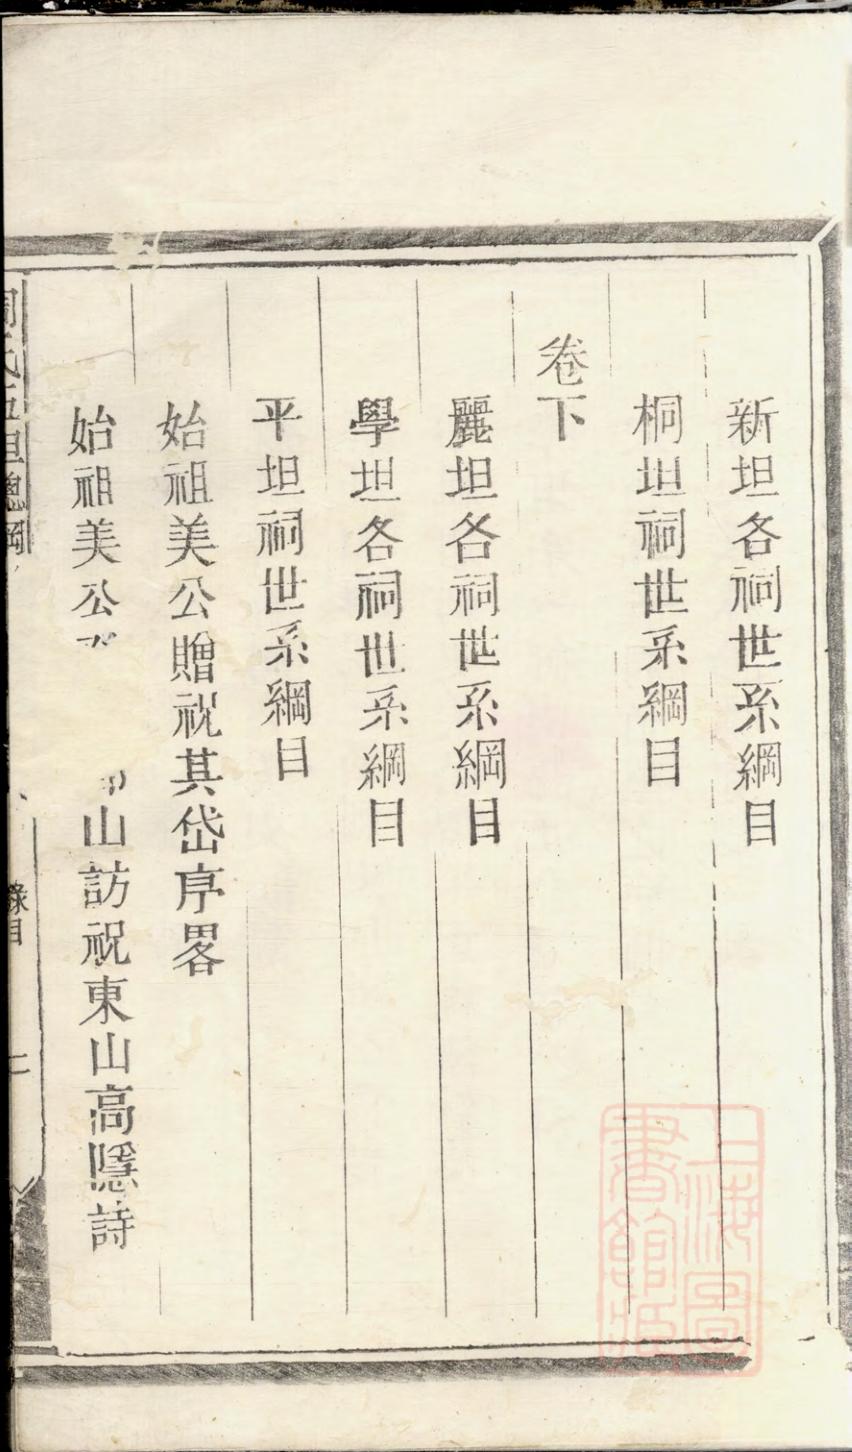 新坦各祠世系綱目
桐坦祠世系綱目
卷下
麗坦各祠世系綱目
學坦各祠世系綱目
平坦祠世系綱目
始祖美公贈祝其岱序畧
始祖美公
山訪祝東山高隱詩
氏五坦總綱
目
上海圖書館藏